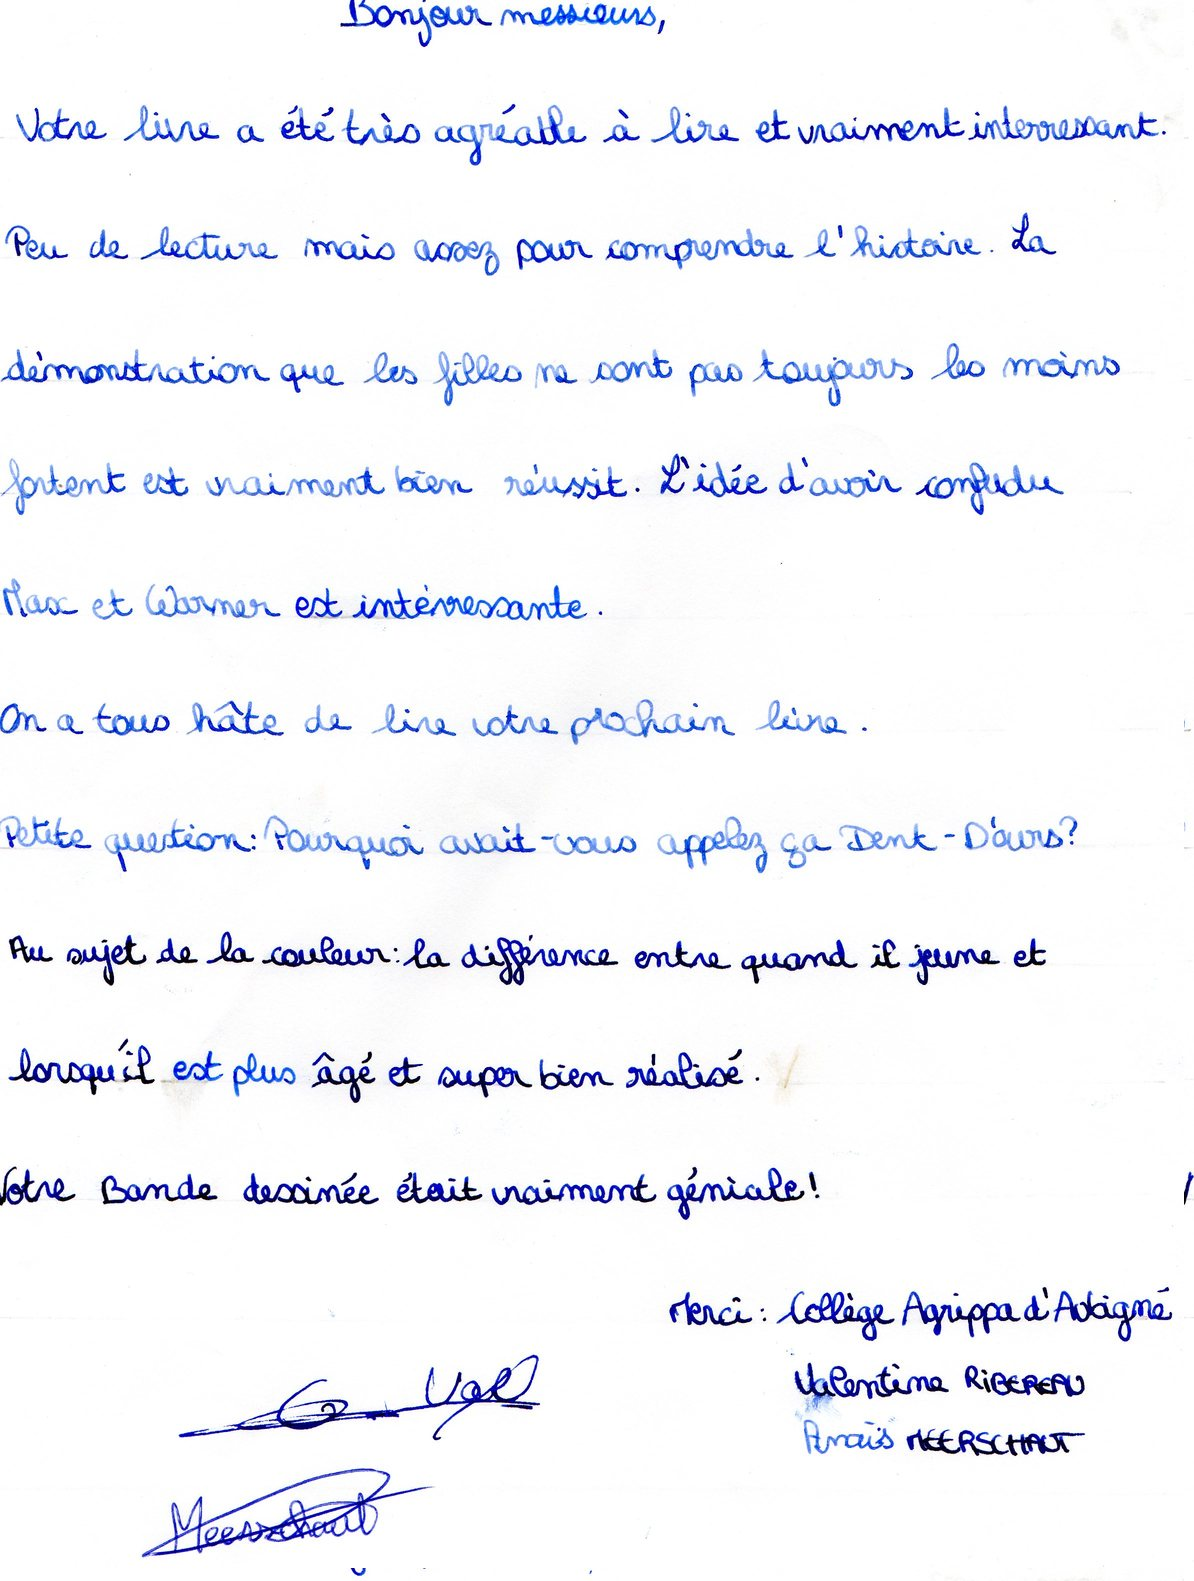 Bonjour messieurs,
Votre livre a été très agréable à lire et vraiment interressant.
Peu de lecture mais assez pour comprendre l'histoire. La
démonstration que les filles ne sont pas toujours les moins
fortent est vraiment bien réussit. L'idée d'avoir confudu
Max et Warner est intérressante.
On a tous hâte de lire votre prochain livre.
Petite question: Pourquoi avait-vous appelez ça Dent-D'ours?
Au sujet de la couleur: la différence entre quand il jeune et
lorsqu'il est plus âgé et super bien réalisé.
Votre Bande dessinée était vraiment géniale!
Merci: Collège Agrippa d'Aubigné
Valentine RIBEREAU
Anaïs MEERSCHAUT
Val
Meerschaut